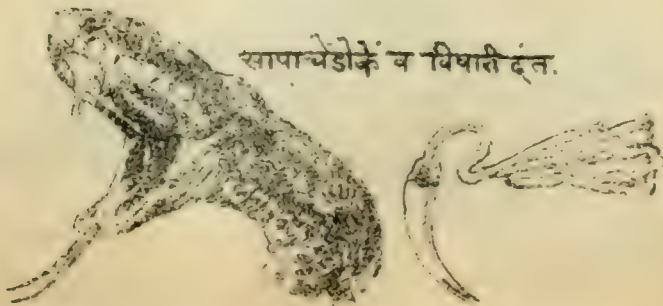 सापाचेंडोकें व विषारी दंत.